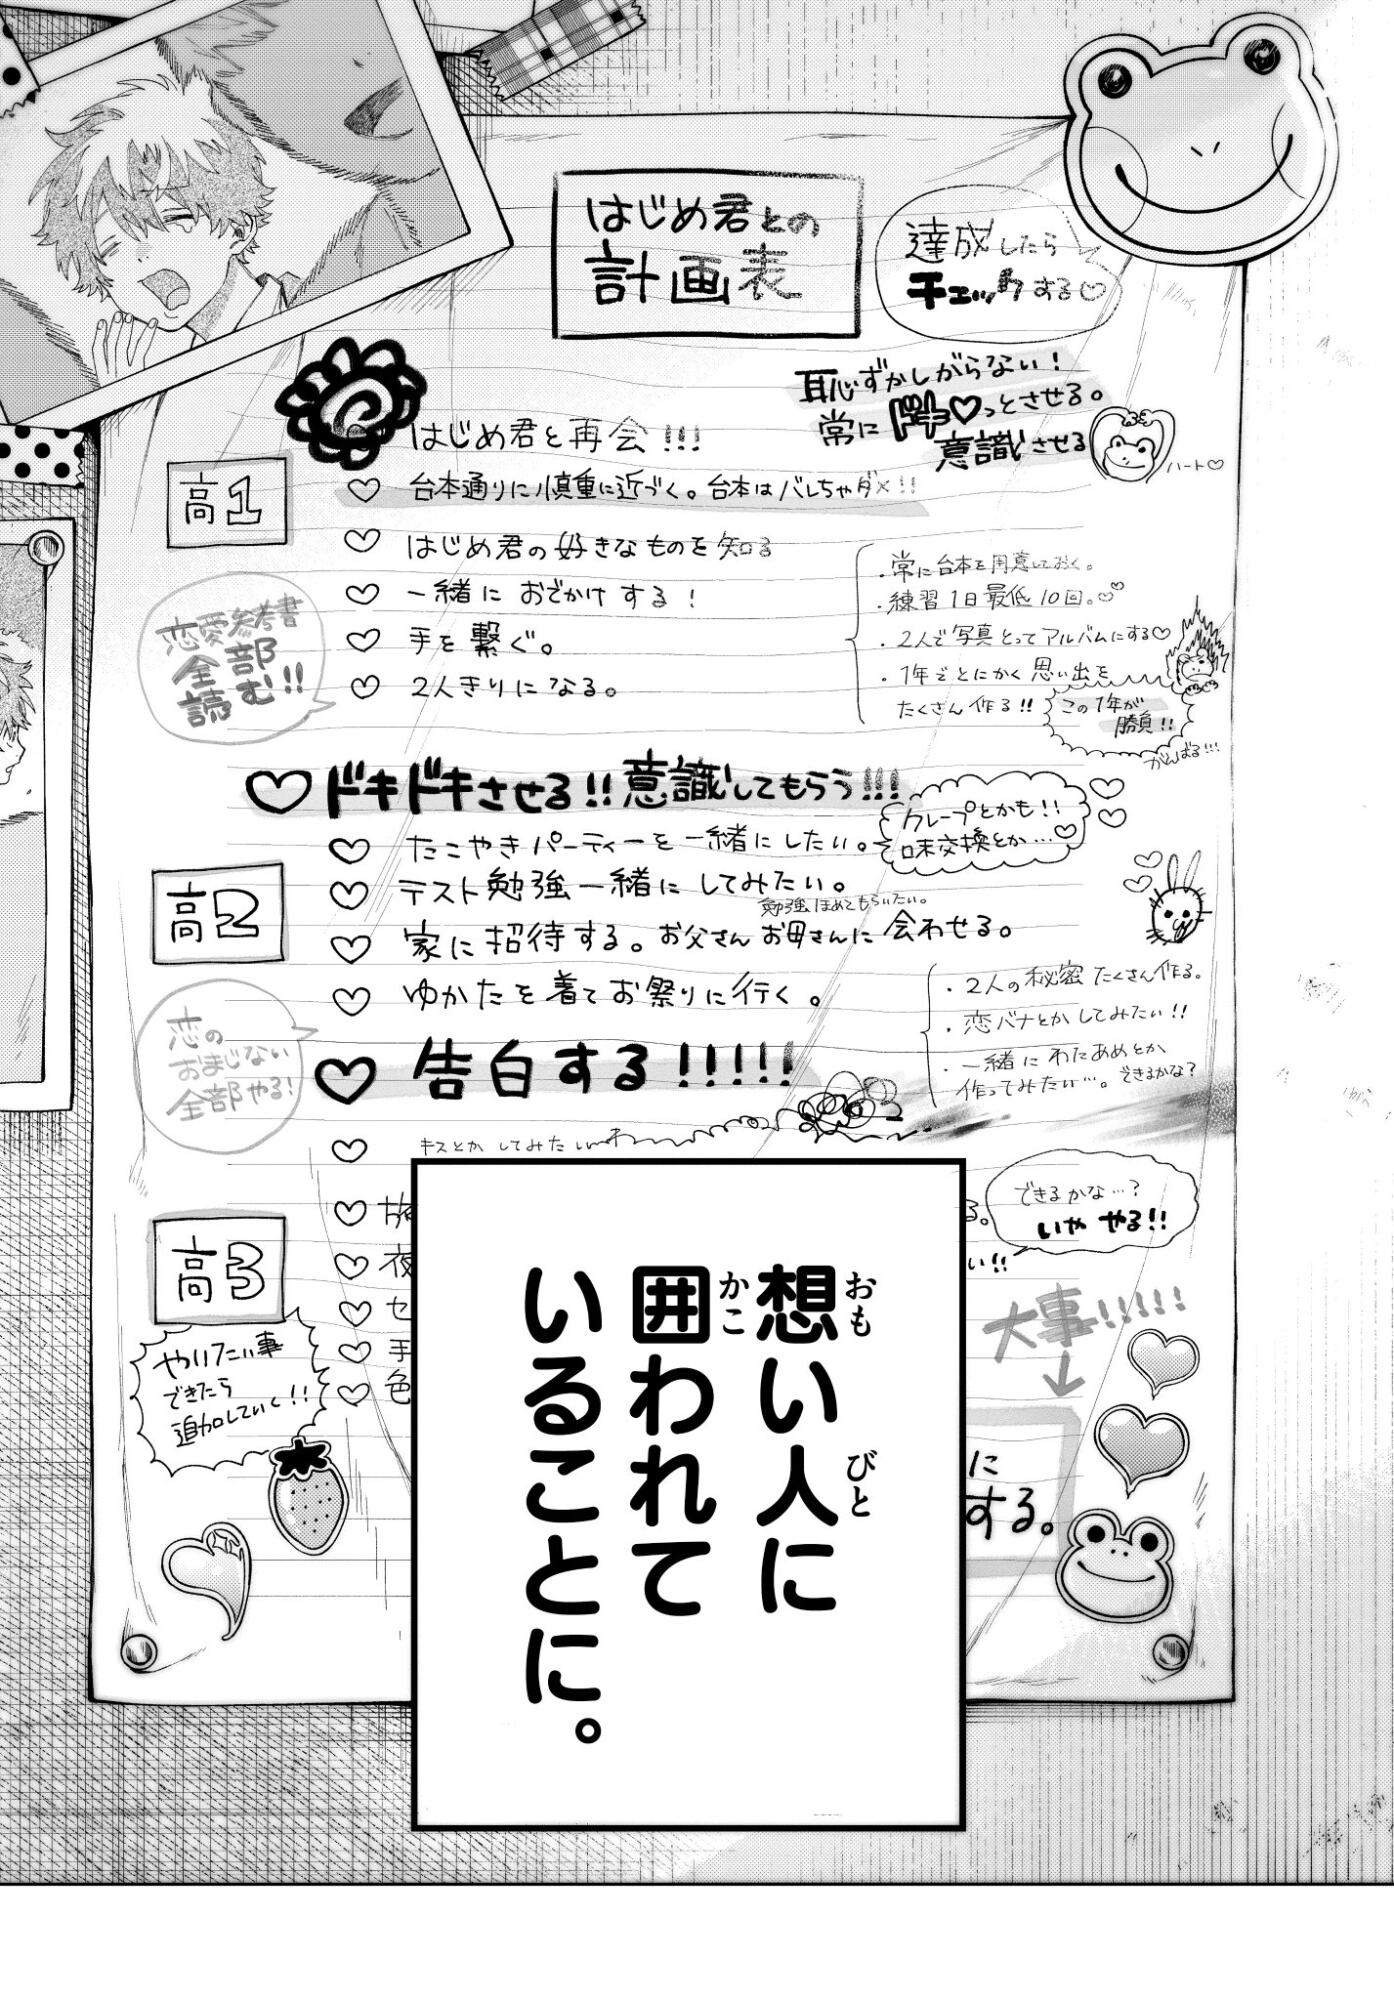 はじめ君との
計画表
達成したら
チェックする♡
恥ずかしがらない！
常にドキ♡っとさせる。
意識させる
ハート♡
はじめ君と再会!!!
高1
♡ 台本通りに慎重に近づく。台本はバレちゃダメ!!
♡ はじめ君の好きなものを知る
♡ 一緒におでかけする！
♡ 手を繋ぐ。
♡ 2人きりになる。
・常に台本を用意しておく。
・練習1日最低10回。♡♡
・2人で写真とってアルバムにする♡
・1年でとにかく思い出を
たくさん作る!!
この1年が
勝負!!
がんばる!!!
恋愛参考書
全部
読む!!
♡ ドキドキさせる!!意識してもらう!!!
♡ たこやきパーティーを一緒にしたい。
クレープとかも!!
味交換とか…♡
高2
♡ テスト勉強一緒にしてみたい。
勉強ほめてもらいたい。
♡ 家に招待する。お父さんお母さんに会わせる。
♡ ゆかたを着てお祭りに行く。
・2人の秘密たくさん作る。
・恋バナとかしてみたい!!
・一緒にわたあめとか
作ってみたい…。できるかな？
恋の
おまじない
全部やる!
♡ 告白する!!!!!
♡ キスとかしてみたい
高3
♡
♡ 夜
♡ セ
♡ 手
♡ 色
る。
い!!
できるかな…？
いや やる!!
やりたい事
できたら
追加していく!!
大事!!!!!
↓
に
する。
想い人に
おも
びと
囲われて
かこ
いることに。